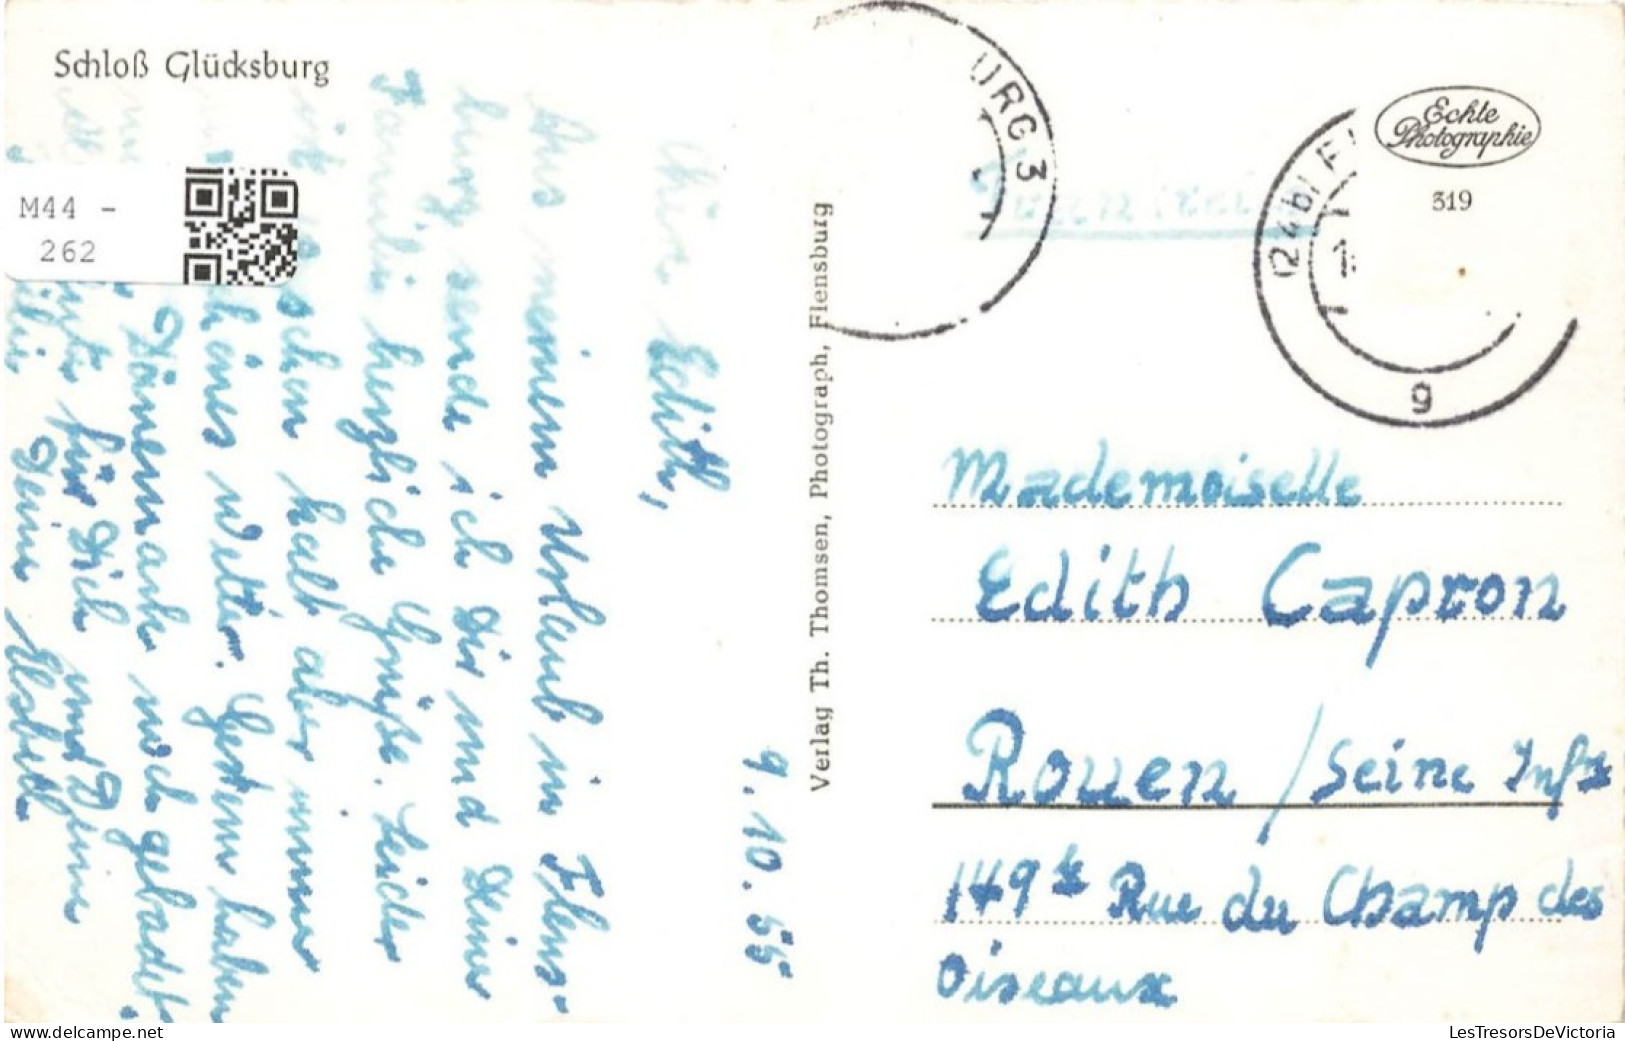 Schloß Glücksburg
M44 -
262
9.10.55
Edith,
Aus meinem Urlaub in Flens-
burg sende ich Dir und Deiner
Familie herzliche Grüße. Leider
ist es schon kalt aber immer
schönes Wetter. Gestern haben
Dänemark noch gebadet.
für Dich und Deine
Deine Elsbeth
Verlag Th. Thomsen, Photograph, Flensburg
URG 3
(24b) F
g
Echte
Photographie
319
Mademoiselle
Edith Capron
Rouen / Seine Inf
149 Rue du Champ des
Oiseaux
LesTresorsDeVictoria